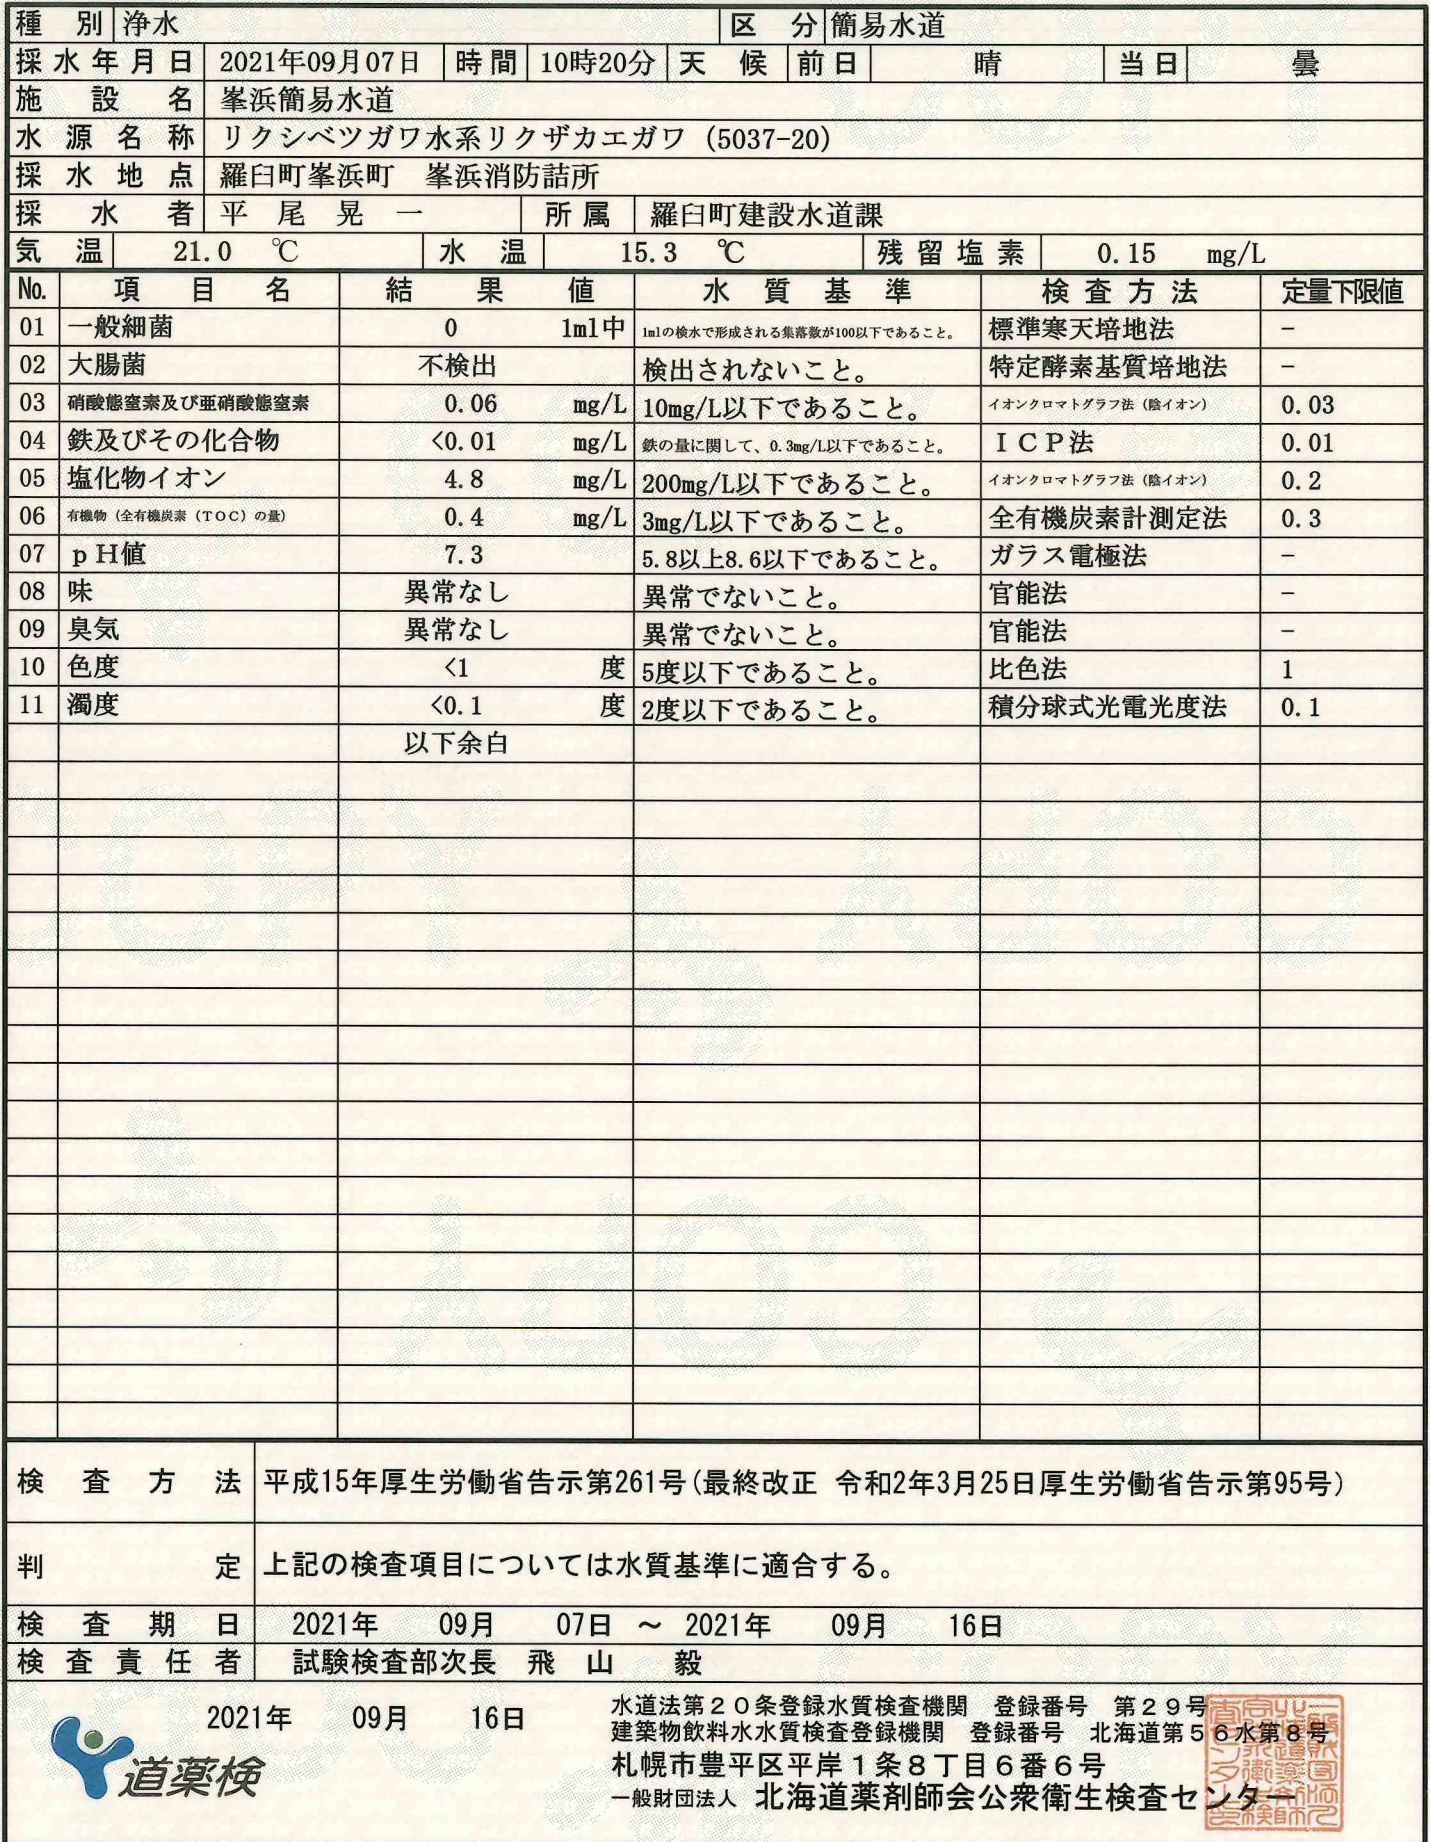 種別 浄水 区分 簡易水道
採水年月日 2021年09月07日 時間 10時20分 天候 前日 晴 当日 曇
施設名 峯浜簡易水道
水源名称 リクシベツガワ水系リクザカエガワ (5037-20)
採水地点 羅臼町峯浜町 峯浜消防詰所
採水者 平尾晃一 所属 羅臼町建設水道課
気温 21.0 ℃ 水温 15.3 ℃ 残留塩素 0.15 mg/L
No. 項目名 結果値 水質基準 検査方法 定量下限値
01 一般細菌 0 1ml中 1mlの検水で形成される集落数が100以下であること。 標準寒天培地法 -
02 大腸菌 不検出 検出されないこと。 特定酵素基質培地法 -
03 硝酸態窒素及び亜硝酸態窒素 0.06 mg/L 10mg/L以下であること。 イオンクロマトグラフ法(陰イオン) 0.03
04 鉄及びその化合物 <0.01 mg/L 鉄の量に関して、0.3mg/L以下であること。 ICP法 0.01
05 塩化物イオン 4.8 mg/L 200mg/L以下であること。 イオンクロマトグラフ法(陰イオン) 0.2
06 有機物(全有機炭素(TOC)の量) 0.4 mg/L 3mg/L以下であること。 全有機炭素計測定法 0.3
07 pH値 7.3 5.8以上8.6以下であること。 ガラス電極法 -
08 味 異常なし 異常でないこと。 官能法 -
09 臭気 異常なし 異常でないこと。 官能法 -
10 色度 <1 度 5度以下であること。 比色法 1
11 濁度 <0.1 度 2度以下であること。 積分球式光電光度法 0.1
以下余白
検査方法 平成15年厚生労働省告示第261号(最終改正 令和2年3月25日厚生労働省告示第95号)
判定 上記の検査項目については水質基準に適合する。
検査期日 2021年 09月 07日 ～ 2021年 09月 16日
検査責任者 試験検査部次長 飛山 毅
2021年 09月 16日
水道法第20条登録水質検査機関 登録番号 第29号
建築物飲料水水質検査登録機関 登録番号 北海道第56水第8号
札幌市豊平区平岸1条8丁目6番6号
一般財団法人 北海道薬剤師会公衆衛生検査センター
道薬検
COPY
COPY
COPY